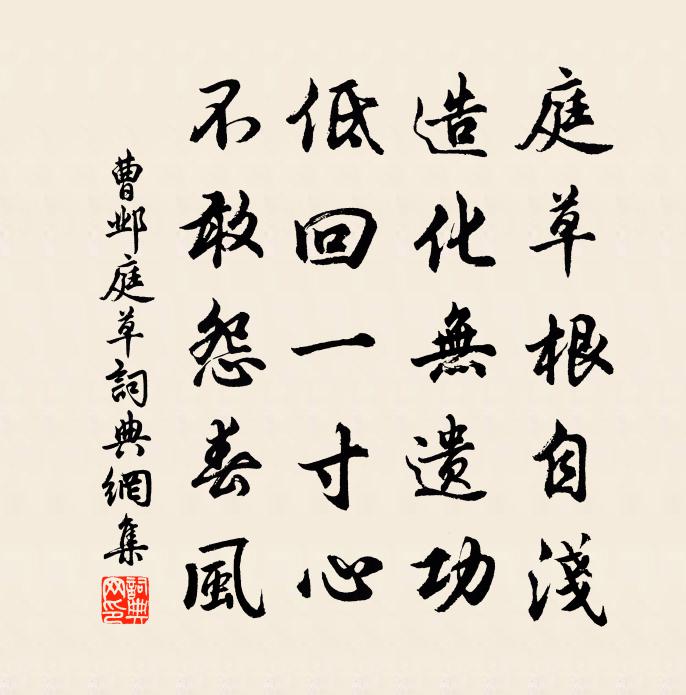 庭草根自淺
造化無遗功
低回一寸心
不敢怨春風
曹邺庭草詞典網集
詞典网印